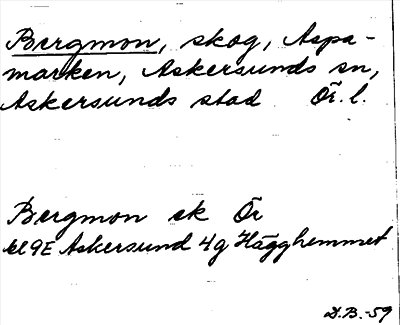 Bergmon, skog, Aspa-
marken, Askersunds sn,
Askersunds stad Ör. l.
Bergmon ek Ör
bl 9E Askersund 4g Hägghemmet
D.B.-59